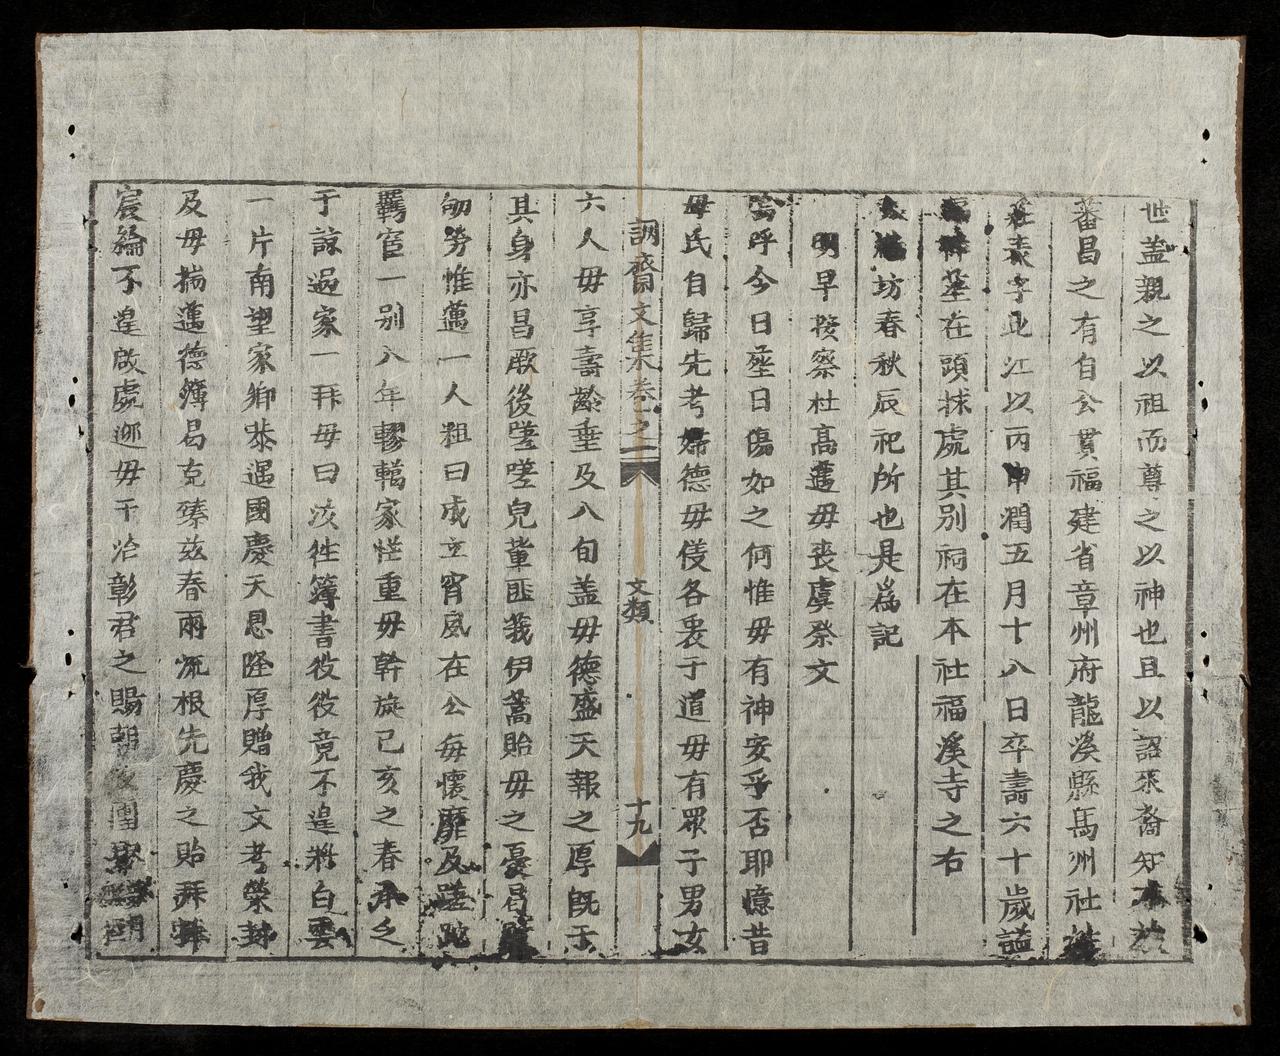 世盖親之以祖而尊之以神也且以詔来裔知
蕃昌之有自公貫福建省章州府龍溪縣馬州社
字北江以丙申潤五月十八日卒壽六十歲謚
墓在頭抹處其别祠在本社福溪寺之右
坊春秋辰祀所也是爲記
明早按察杜髙邁毋喪虞祭文
嗚呼今日塟日傷如之何惟毋有神安乎否耶憶昔
毋氏自歸先考婦德毋儀各裛于道毋有眾子男女
六人毋享壽齡垂及八旬盖毋德盛天報之厚既于
其身亦昌厥後嗟嗟兒軰匪莪伊蒿貽毋之憂昌
劬劳惟邁一人粗曰成立宵風在公每懷靡及蹉跎
羈宦一别八年轇轕家恠重毋幹旋己亥之春承乏
于諒過家一拜毋曰汝徃簿書役役竟不遑將白雲
一片南望家鄉恭遇國慶天恩隆厚贈我文考榮封
及毋揣邁德簿曷克臻兹春雨流根先慶之貽拜
宸綸不遑啟處迎毋于冾彰君之賜
訒齋文集卷之二
文類
十九